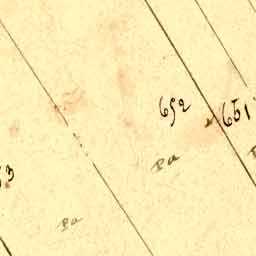 692
651
3
Pa
Pa